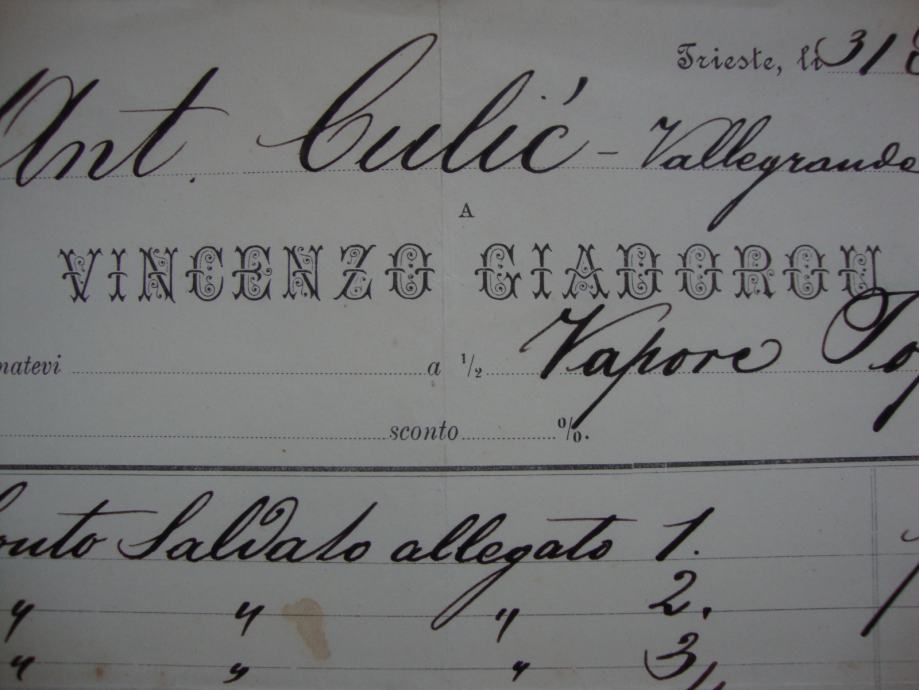 Trieste, li 31
Ant. Culić - Vallegrande
A
VINCENZO GIADOROU
matevi a 1/2 Vapore
sconto %.
onto Saldato allegato 1.
" " " 2.
" " " 3